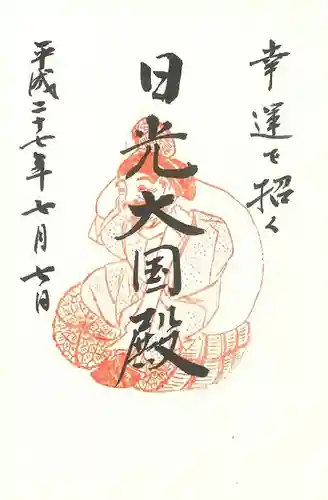 幸運を招く
日光大国殿
平成二十七年七月七日